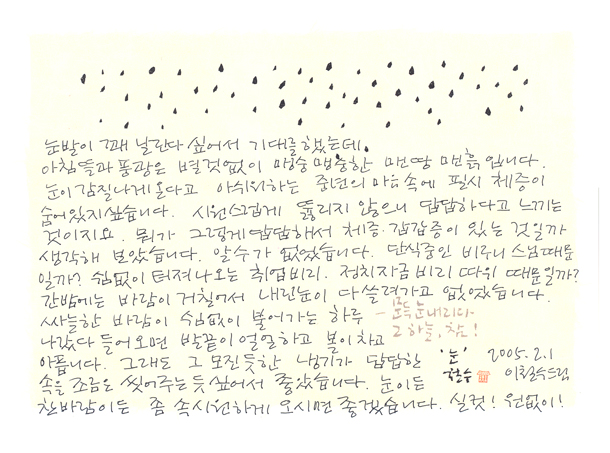 눈발이 꽤 날린다 싶어서 기대를 했는데,
아침 뜰과 풍광은 별것없이 맹숭맹숭한 맨땅 맨흙입니다.
눈이 감질나게 온다고 아쉬워하는 중년의 마음속에 필시 체증이
숨어있지 싶습니다. 시원스럽게 뚫리지 않으니 답답하다고 느끼는
것이지요. 뭐가 그렇게 답답해서 체증 갑갑증이 있는 것일까
생각해 보았습니다. 알수가 없었습니다. 단식중인 비구니 스님때문
일까? 쉼없이 터져나오는 취업비리. 정치자금 비리 따위 때문일까?
간밤에는 바람이 거칠어서 내린눈이 다 쓸려가고 없었습니다.
싸늘한 바람이 쉼없이 불어가는 하루
나갔다 들어오면 발끝이 얼얼하고 볼이 차고
아픕니다. 그래도 그 모진듯한 냉기가 답답한
속을 조금은 씻어주는듯 싶어서 좋았습니다. 눈이든
찬바람이든 좀 속시원하게 오시면 좋겠습니다. 실컷! 원없이!
눈내리다
그 하늘, 참!
'눈' 2005.2.1
철수 이철수드림